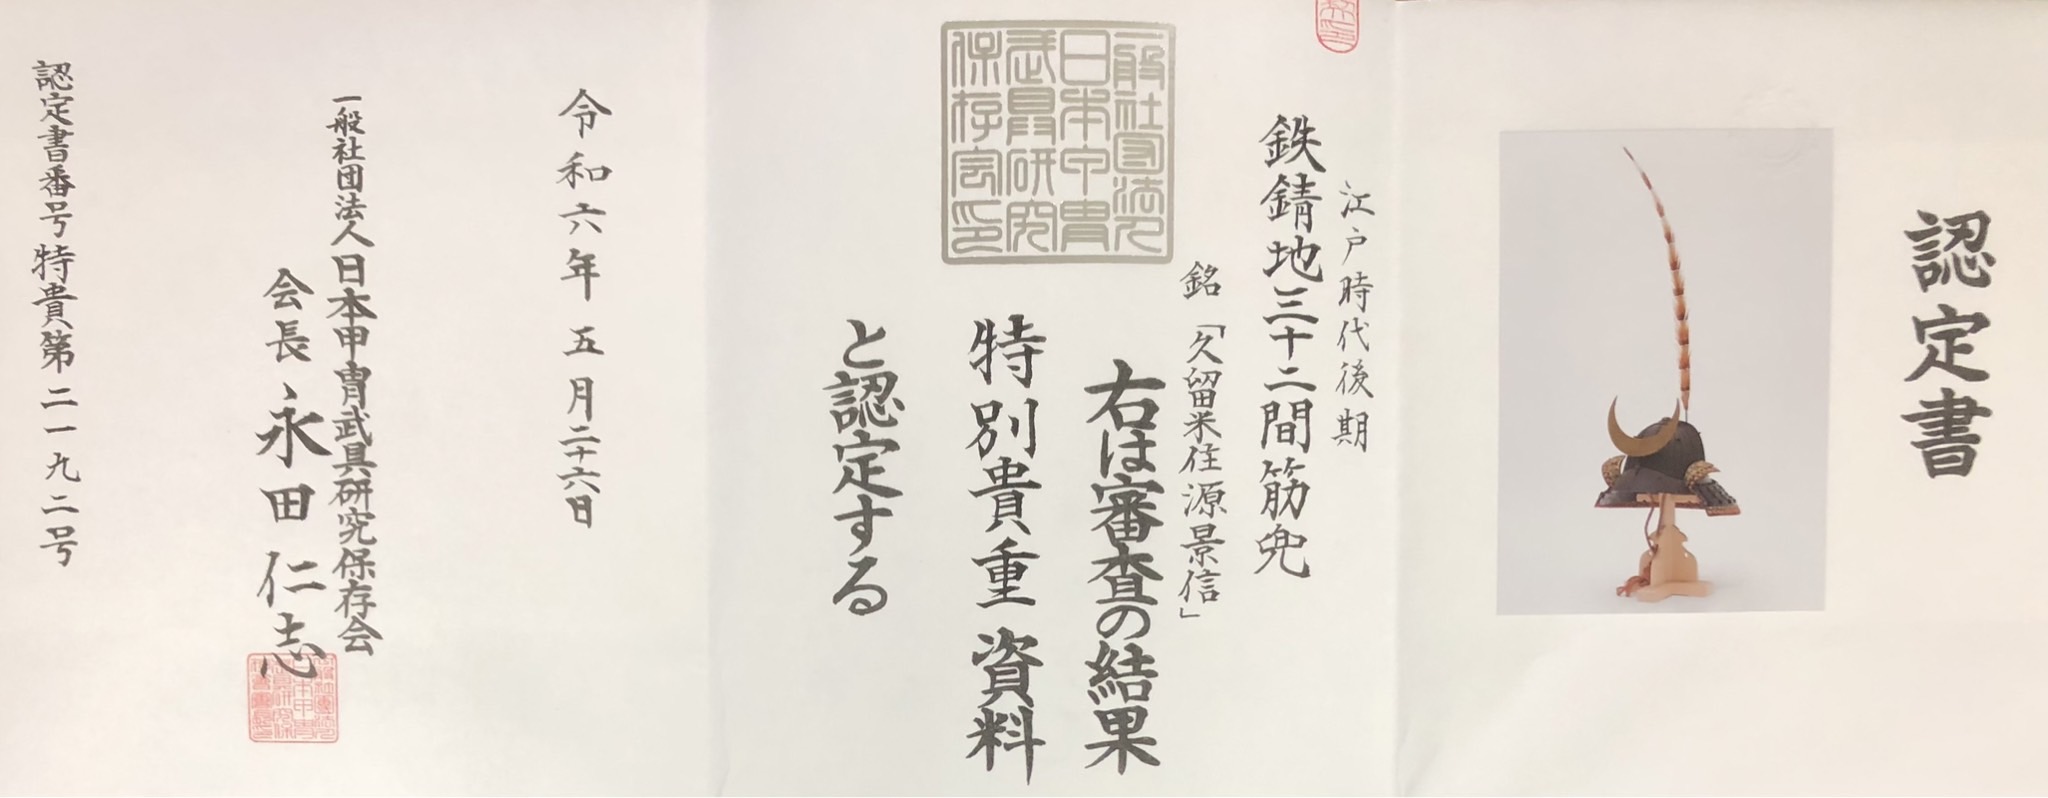 認定書
江戸時代後期
鉄錆地三十二間筋兜
銘「久留米住源景信」
右は審査の結果
特別貴重資料
と認定する
一般社団法人日本甲冑武具研究保存会印
令和六年五月二十六日
一般社団法人日本甲冑武具研究保存会
会長永田仁志
認定書番号特貴第二一九二号